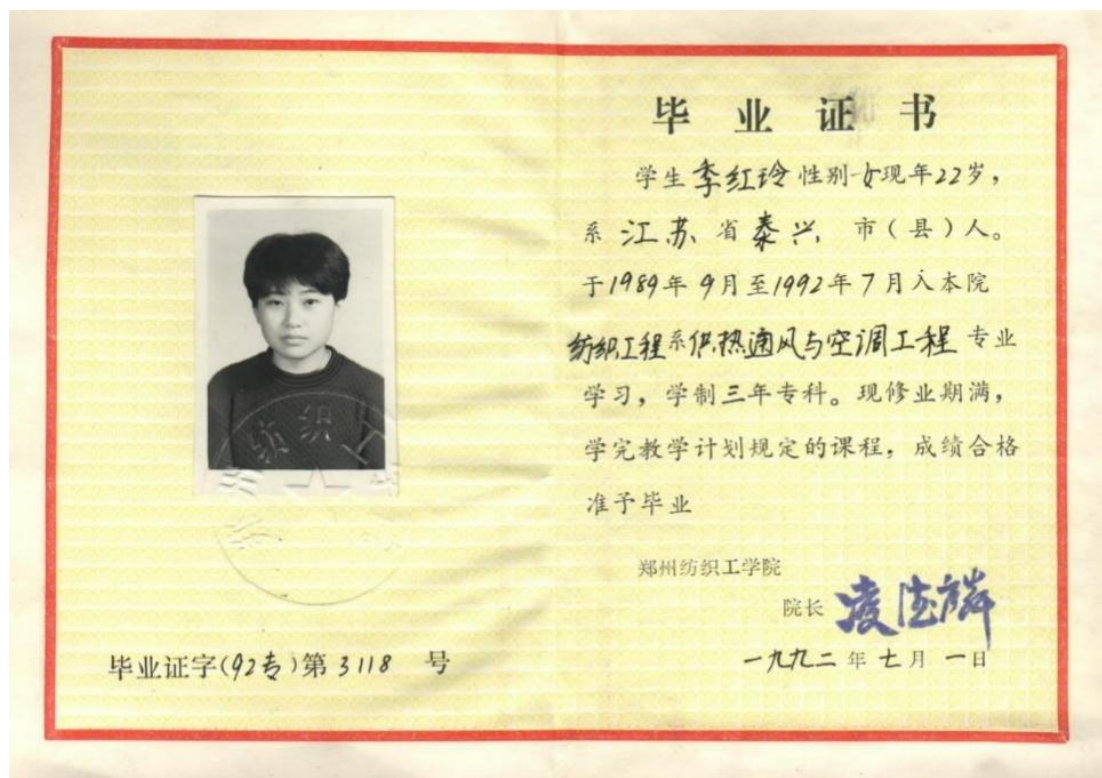 毕业证书
学生季红玲性别女现年22岁，
系江苏省泰兴市（县）人。
于1989年9月至1992年7月入本院
纺织工程系供热通风与空调工程专业
学习，学制三年专科。现修业期满，
学完教学计划规定的课程，成绩合格
准予毕业
郑州纺织工学院
院长 凌德麟
一九九二年七月一日
毕业证字(92专)第3118号
纺织工